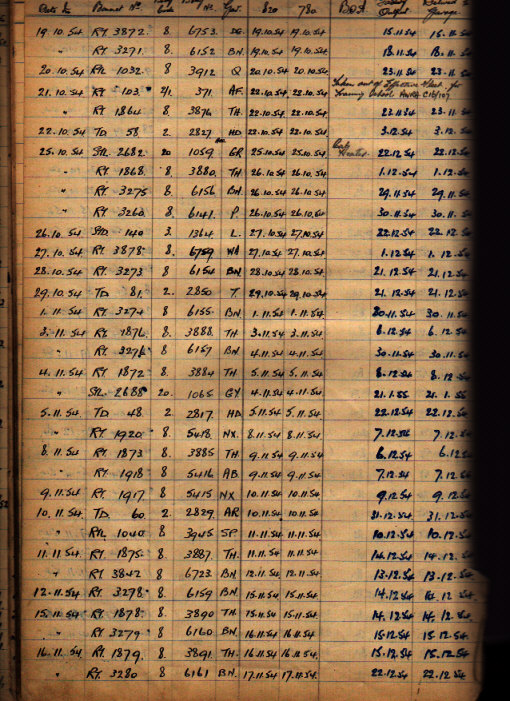 Date In Bonnet No. Code Body No. Gar. 820 780 B.O.I Output Garage
19.10.54 RT 3872 8 6753 DG. 19.10.54 19.10.54 15.11.54 15.11.54
" RT 3271 8 6152 BN. 19.10.54 19.10.54 18.11.54 18.11.54
20.10.54 RTL 1032 8 3912 Q 20.10.54 20.10.54 23.11.54 23.11.54
21.10.54 RT 103 2/1 371 AF. 22.10.54 22.10.54 Taken out of Effective Fleet for Training School
" RT 1864 8 3876 TH. 22.10.54 22.10.54 23.11.54 23.11.54
22.10.54 TD 58 2 2827 HD 22.10.54 22.10.54 3.12.54 3.12.54
25.10.54 RTL 2682 20 1059 GR 25.10.54 25.10.54 Heater 22.12.54 22.12.54
" RT 1868 8 3880 TH. 26.10.54 26.10.54 1.12.54 1.12.54
RT 3275 8 6156 BN. 26.10.54 26.10.54 29.11.54 29.11.54
RT 3260 8 6141 P. 26.10.54 26.10.54 30.11.54 30.11.54
26.10.54 STD 140 3 1364 L. 27.10.54 27.10.54 22.12.54 22.12.54
27.10.54 RT 3878 8 6759 WA 27.10.54 27.10.54 1.12.54 1.12.54
28.10.54 RT 3273 8 6154 BN 28.10.54 28.10.54 21.12.54 21.12.54
29.10.54 TD 81 2 2850 T. 29.10.54 29.10.54 21.12.54 21.12.54
1.11.54 RT 3274 8 6155 BN. 1.11.54 1.11.54 30.11.54 30.11.54
3.11.54 RT 1876 8 3888 TH. 3.11.54 3.11.54 6.12.54 6.12.54
" RT 3276 8 6157 BN. 4.11.54 4.11.54 30.11.54 30.11.54
4.11.54 RT 1872 8 3884 TH. 5.11.54 5.11.54 8.12.54 8.12.54
" 2688 20 1065 GY 4.11.54 4.11.54 21.1.55 21.1.55
5.11.54 TD 48 2 2817 HD 5.11.54 5.11.54 22.12.54 22.12.54
" RT 1920 8 5418 NX. 8.11.54 8.11.54 7.12.54 7.12.54
8.11.54 RT 1873 8 3885 TH 9.11.54 9.11.54 6.12.54 6.12.54
" RT 1918 8 5416 AB. 9.11.54 9.11.54 7.12.54 7.12.54
9.11.54 RT 1917 8 5415 NX 10.11.54 10.11.54 9.12.54 9.12.54
10.11.54 TD 60 2 2829 AR 10.11.54 10.11.54 31.12.54 31.12.54
" RTL 1040 8 3945 SP. 11.11.54 11.11.54 10.12.54 10.12.54
11.11.54 RT 1875 8 3887 TH. 11.11.54 11.11.54 14.12.54 14.12.54
" RT 3842 8 6723 BN. 12.11.54 12.11.54 13.12.54 13.12.54
12.11.54 RT 3278 8 6159 BN 15.11.54 15.11.54 14.12.54 14.12.54
15.11.54 RT 1878 8 3890 TH 15.11.54 15.11.54 14.12.54 14.12.54
" RT 3279 8 6160 BN. 16.11.54 16.11.54 15.12.54 15.12.54
16.11.54 RT 1879 8 3891 TH. 16.11.54 16.11.54 15.12.54 15.12.54
" RT 3280 8 6161 BN. 17.11.54 17.11.54 22.12.54 22.12.54